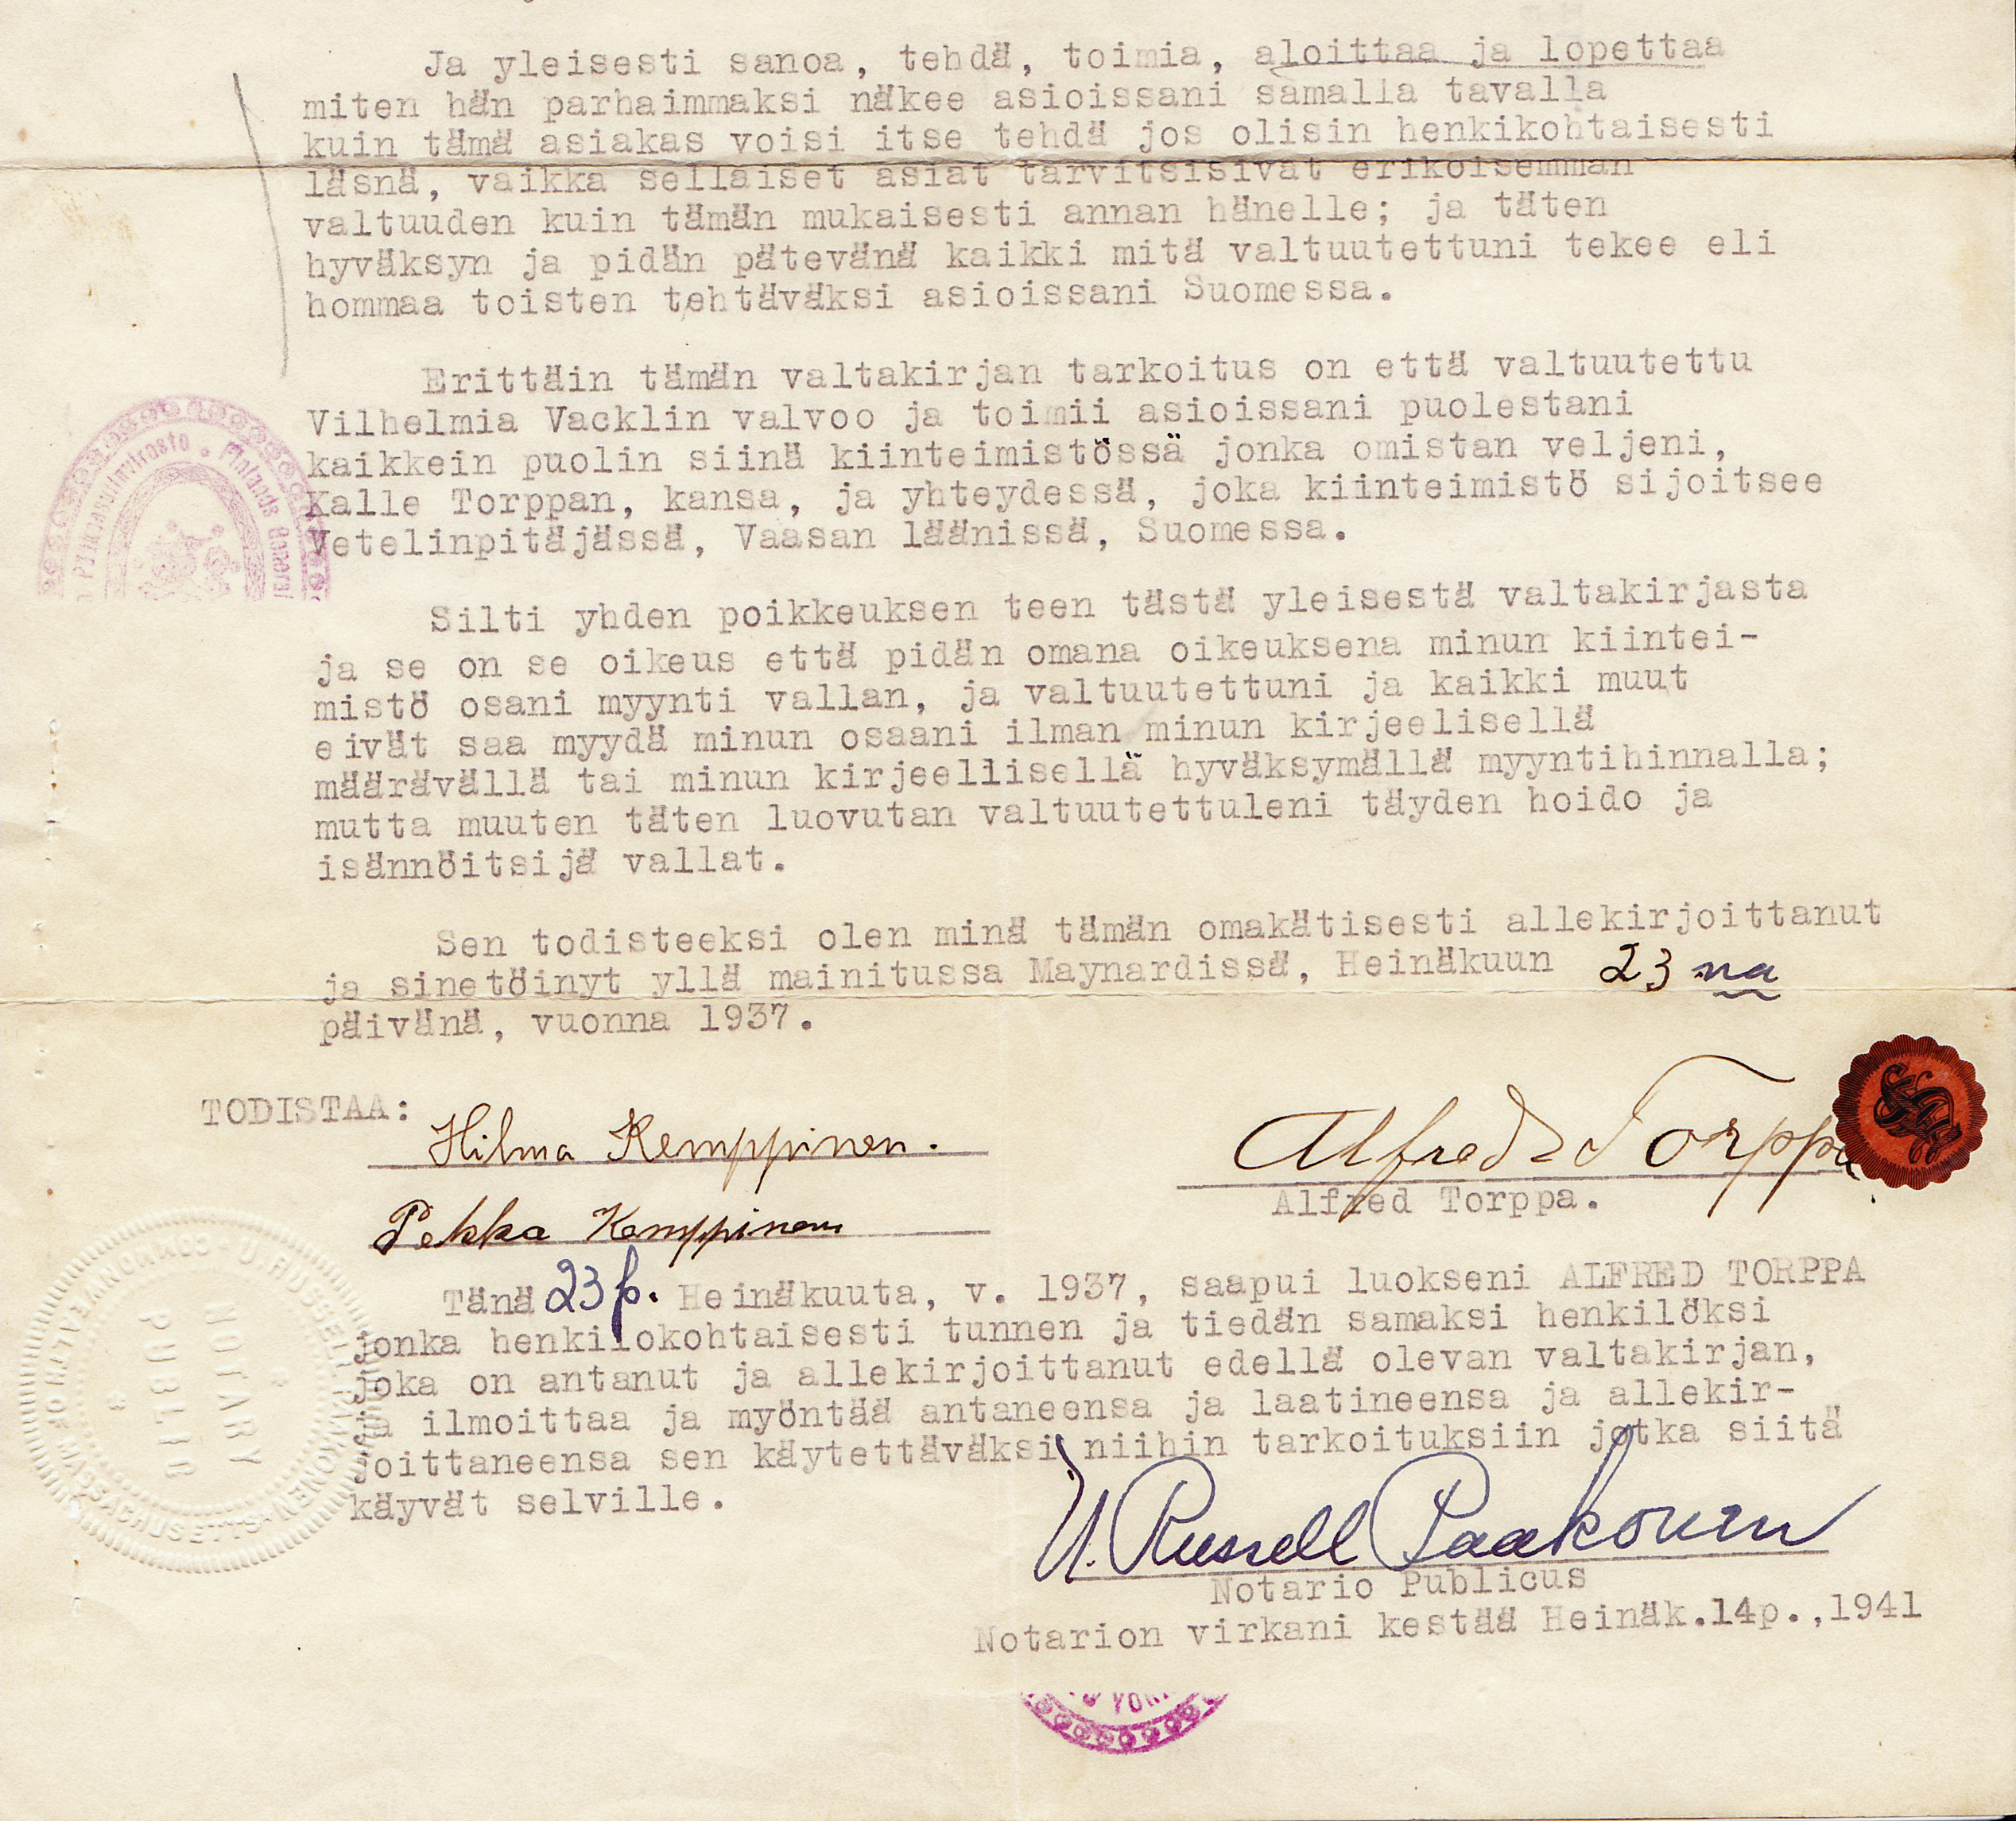 Ja yleisesti sanoa, tehdä, toimia, aloittaa ja lopettaa
miten hän parhaimmaksi näkee asioissani samalla tavalla
kuin tämä asiakas voisi itse tehdä jos olisin henkikohtaisesti
läsnä, vaikka sellaiset asiat tarvitsisivat erikoisemman
valtuuden kuin tämän mukaisesti annan hänelle; ja täten
hyväksyn ja pidän pätevänä kaikki mitä valtuutettuni tekee eli
hommaa toisten tehtäväksi asioissani Suomessa.
Erittäin tämän valtakirjan tarkoitus on että valtuutettu
Vilhelmia Vacklin valvoo ja toimii asioissani puolestani
kaikkein puolin siinä kiinteimistössä jonka omistan veljeni,
Kalle Torppan, kansa, ja yhteydessä, joka kiinteimistö sijoitsee
Vetelinpitäjässä, Vaasan läänissä, Suomessa.
Finlands General
Silti yhden poikkeuksen teen tästä yleisestä valtakirjasta
ja se on se oikeus että pidän omana oikeuksena minun kiintei-
mistö osani myynti vallan, ja valtuutettuni ja kaikki muut
eivät saa myydä minun osaani ilman minun kirjeelisellä
määrävällä tai minun kirjeellisellä hyväksymällä myyntihinnalla;
mutta muuten täten luovutan valtuutettuleni täyden hoido ja
isännöitsijä vallat.
Sen todisteeksi olen minä tämän omakätisesti allekirjoittanut
ja sinetöinyt yllä mainitussa Maynardissä, Heinäkuun 23 na
päivänä, vuonna 1937.
TODISTAA:
Hilma Kemppinen.
Alfred Torppa
Alfred Torppa.
Pekka Kemppinen
Tänä 23 p. Heinäkuuta, v. 1937, saapui luokseni ALFRED TORPPA
jonka henkilokohtaisesti tunnen ja tiedän samaksi henkilöksi
joka on antanut ja allekirjoittanut edellä olevan valtakirjan,
ja ilmoittaa ja myöntää antaneensa ja laatineensa ja allekir-
joittaneensa sen käytettäväksi niihin tarkoituksiin jotka siitä
käyvät selville.
U. RUSSELL PAAKKONEN
COMMONWEALTH OF MASSACHUSETTS
NOTARY
PUBLIC
U. Russell Paakonen
Notario Publicus
Notarion virkani kestää Heinäk.14p.,1941